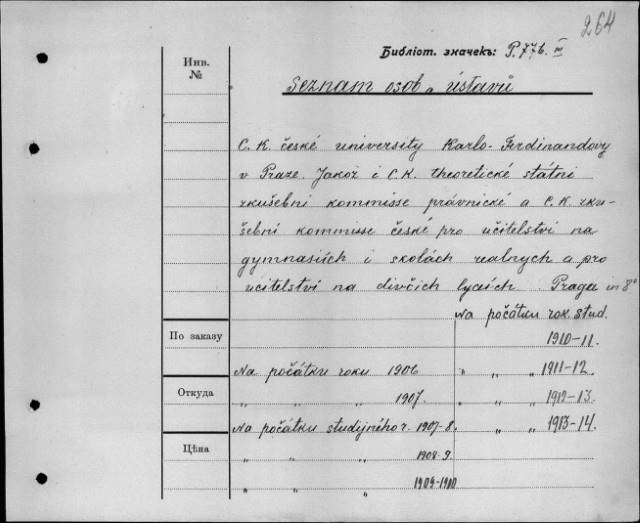 264
Библіот. значекъ: P.776. IV
Инв.
№
Seznam osob a ústavů
C. K. české university Karlo-Ferdinandovy
v Praze. Jakož i C.K. theoretické státni
zkušebni kommisse právnické a C.K. zku-
šební kommisse české pro učitelstvi na
gymnasiích i skolách realnych a pro
učitelství na divčich lyceích. Praga in 8°
Na počátku rok. stud.
По заказу
1910-11.
Na počátku roku 1906
" " " 1911-12.
Откуда
" " 1907.
" " " 1912-13.
Na počátku studijného r. 1907-8.
" " " 1913-14.
Цѣна
" " " 1908-9.
" " " 1909-1910